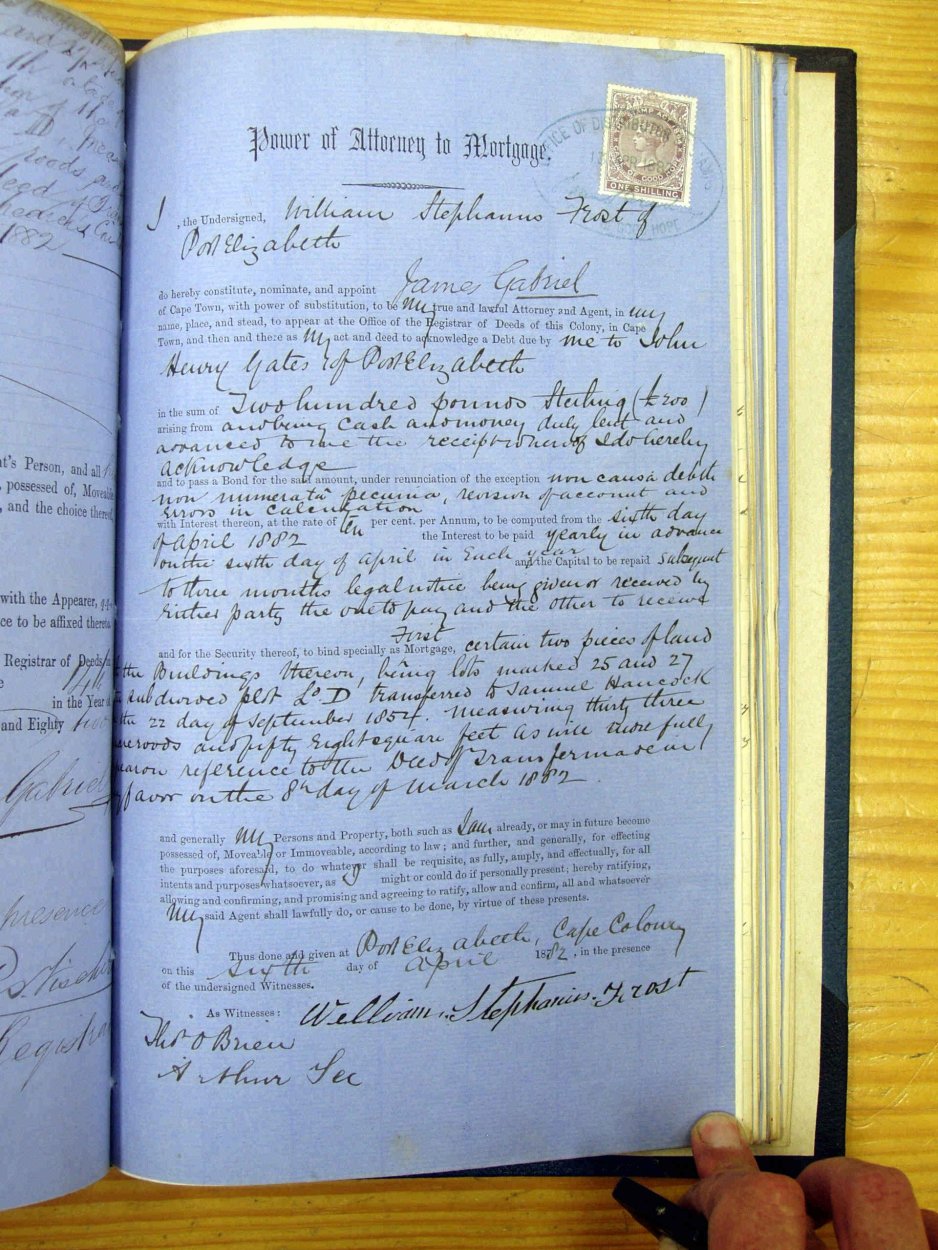 Power of Attorney to Mortgage.
ONE SHILLING
I, the Undersigned, William Stephanus Frost of
Port Elizabeth
do hereby constitute, nominate, and appoint James Gabriel
of Cape Town, with power of substitution, to be my true and lawful Attorney and Agent, in my
name, place, and stead, to appear at the Office of the Registrar of Deeds of this Colony, in Cape
Town, and then and there as my act and deed to acknowledge a Debt due by me to John
Henry Gates of Port Elizabeth
in the sum of Two hundred pounds Sterling (£200)
arising from and being Cash and money duly lent and
advanced to me the receipt whereof I do hereby
acknowledge
and to pass a Bond for the said amount, under renunciation of the exception non causa debiti
non numerata pecunia, revision of account and
Errors in Calculation
with Interest thereon, at the rate of per cent. per Annum, to be computed from the sixth day
of April 1882 the Interest to be paid yearly in advance
on the sixth day of April in Each year and the Capital to be repaid Subsequent
to three months legal notice being given or received by
Either party the one to pay and the other to receive
First
and for the Security thereof, to bind specially as Mortgage, certain two pieces of land
the Buildings thereon, being lots marked 25 and 27
subdivided plot Lo D transferred to Samuel Hancock
the 22 day of September 1854. Measuring thirty three
roods and fifty Eight square feet as will more fully
reference to the Deed of Transfer made in
favor on the 8th day of March 1882
and generally my Persons and Property, both such as I am already, or may in future become
possessed of, Moveable or Immoveable, according to law; and further, and generally, for effecting
the purposes aforesaid, to do whatever shall be requisite, as fully, amply, and effectually, for all
intents and purposes whatsoever, as I might or could do if personally present; hereby ratifying,
allowing and confirming, and promising and agreeing to ratify, allow and confirm, all and whatsoever
my said Agent shall lawfully do, or cause to be done, by virtue of these presents.
Thus done and given at Port Elizabeth, Cape Colony
on this sixth day of April 1882, in the presence
of the undersigned Witnesses.
As Witnesses: William Stephanus Frost
Thos O Brien
Arthur Lee
1882
's Person, and all
possessed of, Moveable
and the choice thereof,
with the Appearer, q.q.
ce to be affixed thereto.
Registrar of Deeds
in the Year of
and Eighty two
Gabriel
presence